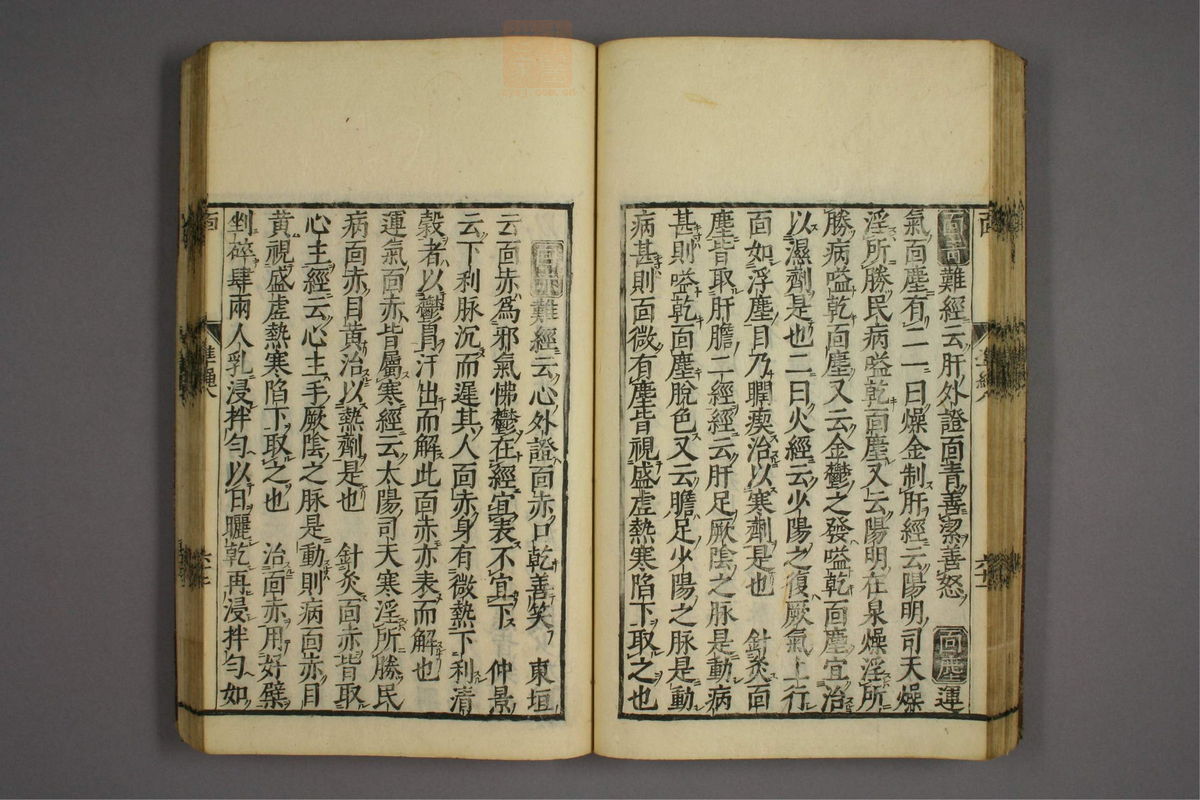 面青難經云肝外證面青善潔善怒 面塵運
氣面塵有二一曰燥金制肝經云陽明司天燥
淫所勝民病嗌乾面塵又云陽明在泉燥淫所
勝病嗌乾面塵又云金鬱之發嗌乾面塵宜治
以濕劑是也二曰火經云少陽之復厥氣上行
面如浮塵目乃瞤瘈治以寒劑是也 針灸面
塵皆取肝膽二經經云肝足厥陰之脉是動病
甚則嗌乾面塵脫色又云膽足少陽之脉是動
病甚則面微有塵皆視盛虚熱寒陷下取之也
面赤難經云心外證面赤口乾善笑 東垣
云面赤爲邪氣怫鬱在經宜表不宜下 仲景
云下利脉沉而遲其人面赤身有微熱下利清
穀者以鬱冒汗出而解此面赤亦表而解也
運氣面赤皆屬寒經云太陽司天寒淫所勝民
病面赤目黄治以熱劑是也 針灸面赤皆取
心主經云心主手厥陰之脉是動則病面赤目
黄視盛虚熱寒陷下取之也 治面赤用好檗
剉碎肆兩人乳浸拌勻以日曬乾再浸拌勻如
面
準繩八